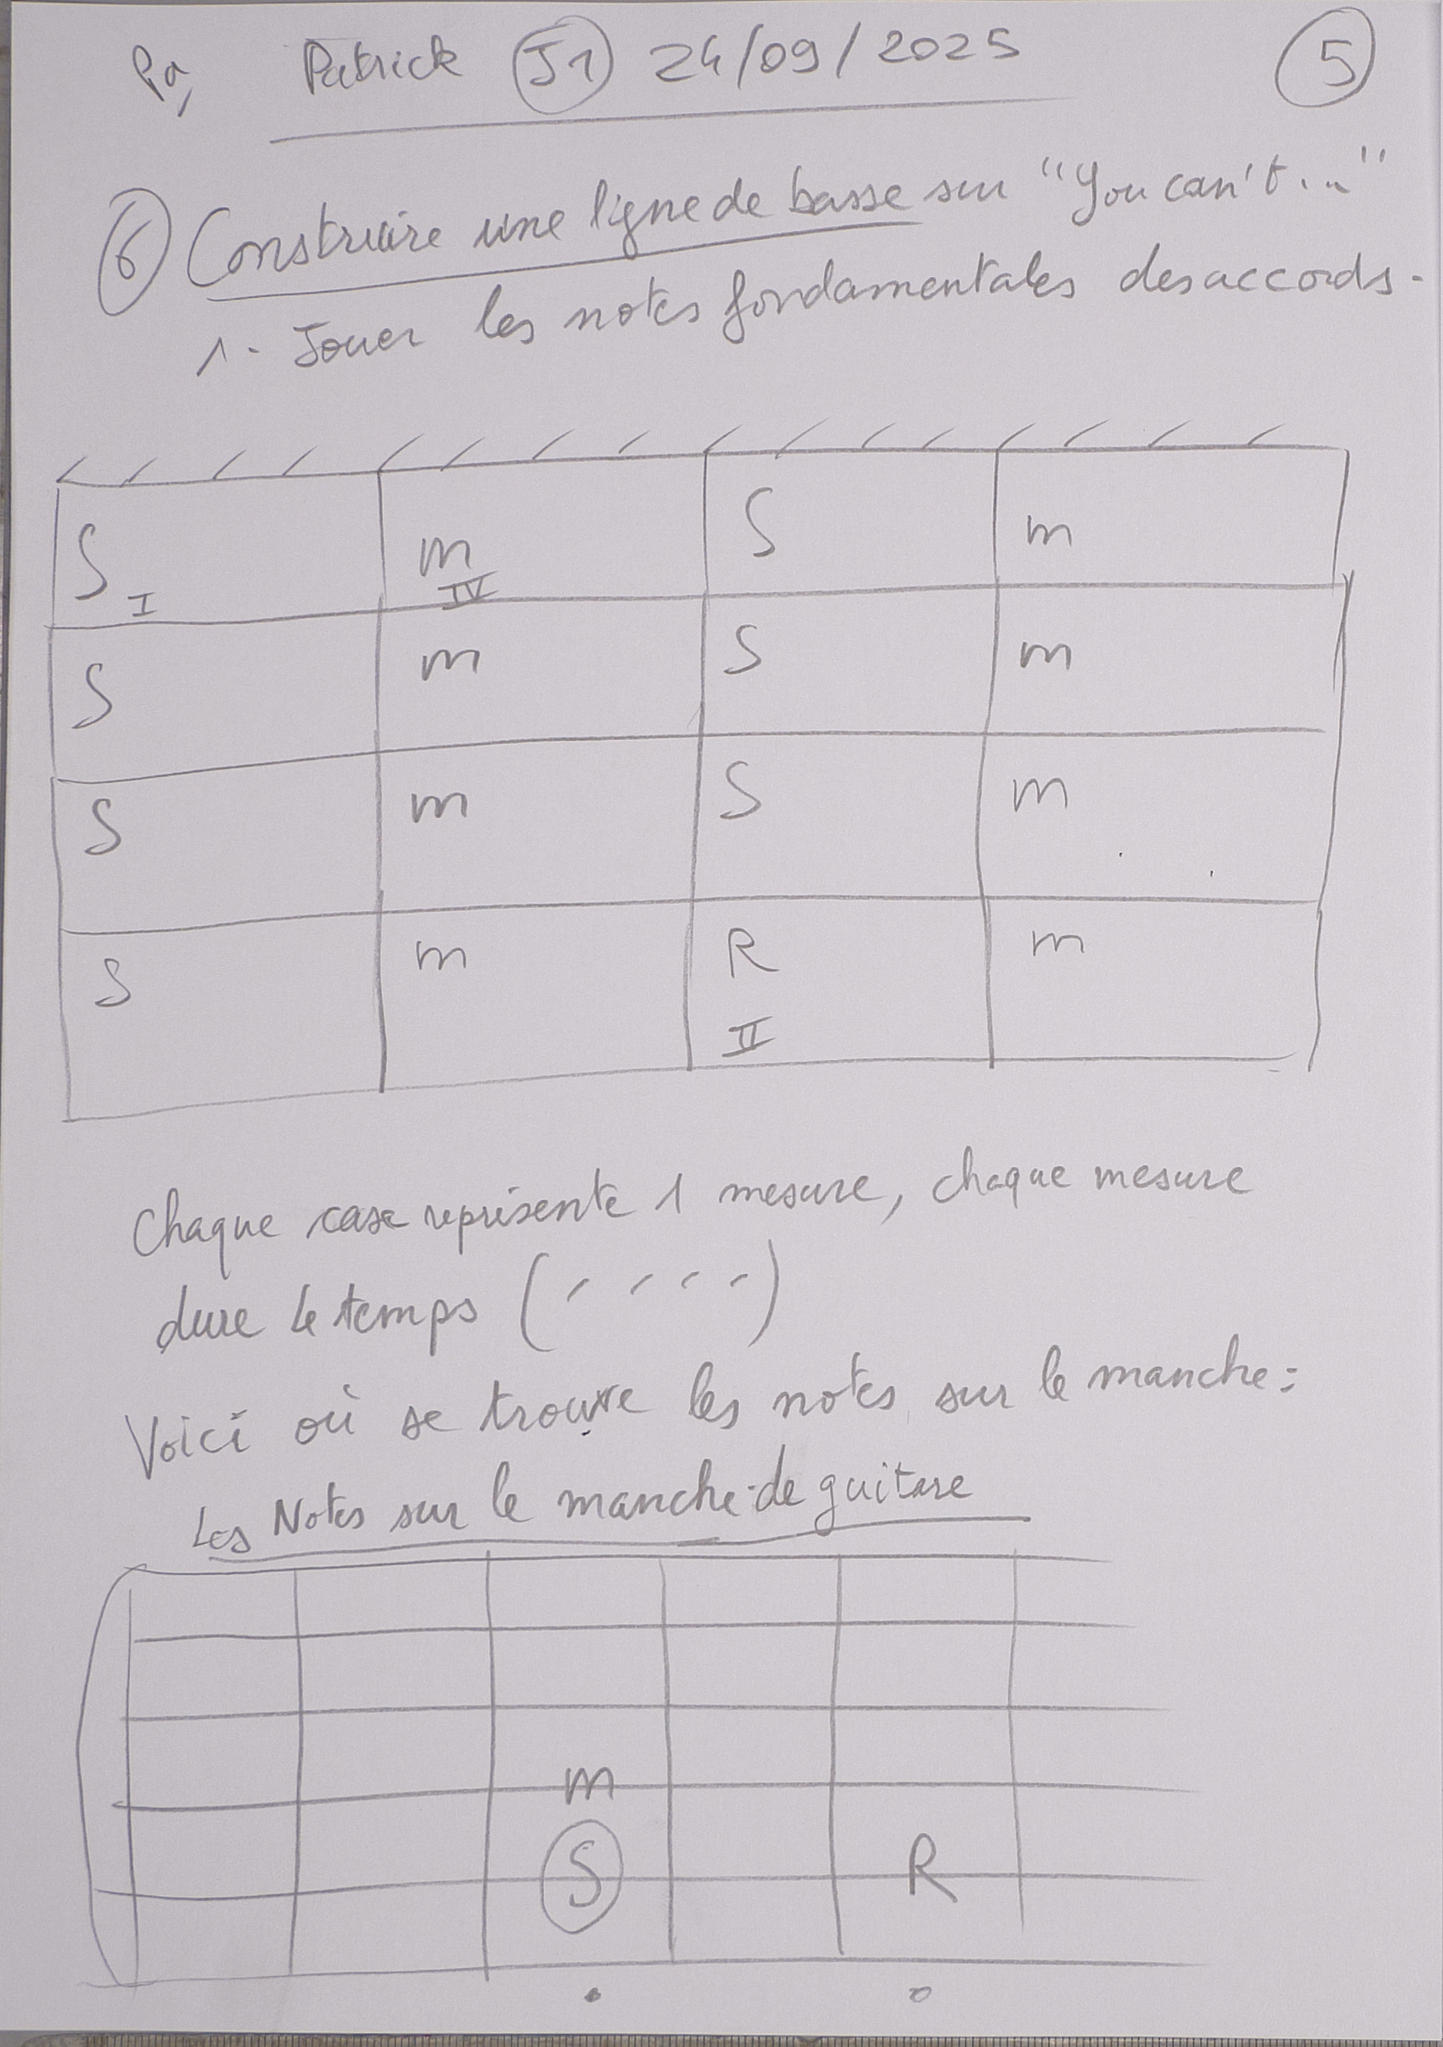 Patrick J1 24/09/2025 5
6 Construire une ligne de basse sur "You can't..."
1- Jouer les notes fondamentales des accords.
S I m IV S m
S m S m
S m S m
S m R II m
Chaque case représente 1 mesure, chaque mesure
dure 4 temps ( )
Voici où se trouve les notes sur le manche :
Les Notes sur le manche de guitare
m
S R